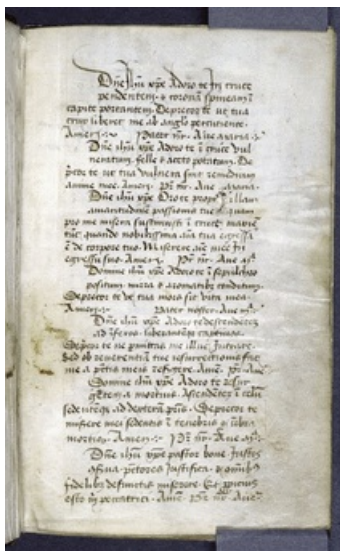 Dñe ihu xpe Adoro te In cruce
pendentem. & coronã spineam ĩ
capite portantem. Deprecor te ut tua
crux liberet me ab anglo percutiente.
Amen. Pater nr̃. Aue maria.
Dñe ihu xpe Adoro te ĩ cruce vul
neratum. felle & aceto potatum. De
p̃cor te ut tua vulnera sint remedium
anime mee. Amen. Pr̃ nr̃. Aue maria.
Dñe ihu xpe Oro te propt̃ illam
amaritudinem passionis tue quam
pro me misera sustinuisti ĩ cruce maxie
tũc quando nobilissima aĩa tua egressa
ẽ de corpore tuo. Miserere aĩe mee In
egressu suo. Amen. Pr̃ nr̃. Aue
Domine ihu xpe Adoro te ĩ sepulchro
positum mirra & aromatibe conditum.
Deprecor te ut tua mors sit vita mea
Amen. Pater noster. Aue
Dñe ihu xpe Adoro te descendentẽ
ad ĩferos liberantẽ captiuos.
Deprecor te ne pmittas me illuc Introire.
Sed ob reuerentiã tue resurrectionis fac
me a pctis meis resurgere. Amẽ. pr̃. Aue
Domine ihu xpe Adoro te resur
gẽtem a mortuis. Ascendẽtẽ ĩ celũ
sedentẽq ad dexterã pris. Deprecor te
misere mei sedentis ĩ tenebris & ũbra
mortis. Amen. Pr̃ nr̃. Aue
Dñe ihu xpe pastor bone Iustos
pctores Iustifica. & omĩbs
fidelibs defunctis miserere. Et ppicius
esto m̃ peccatrici. Amẽ. Pr̃ nr̃. Aue